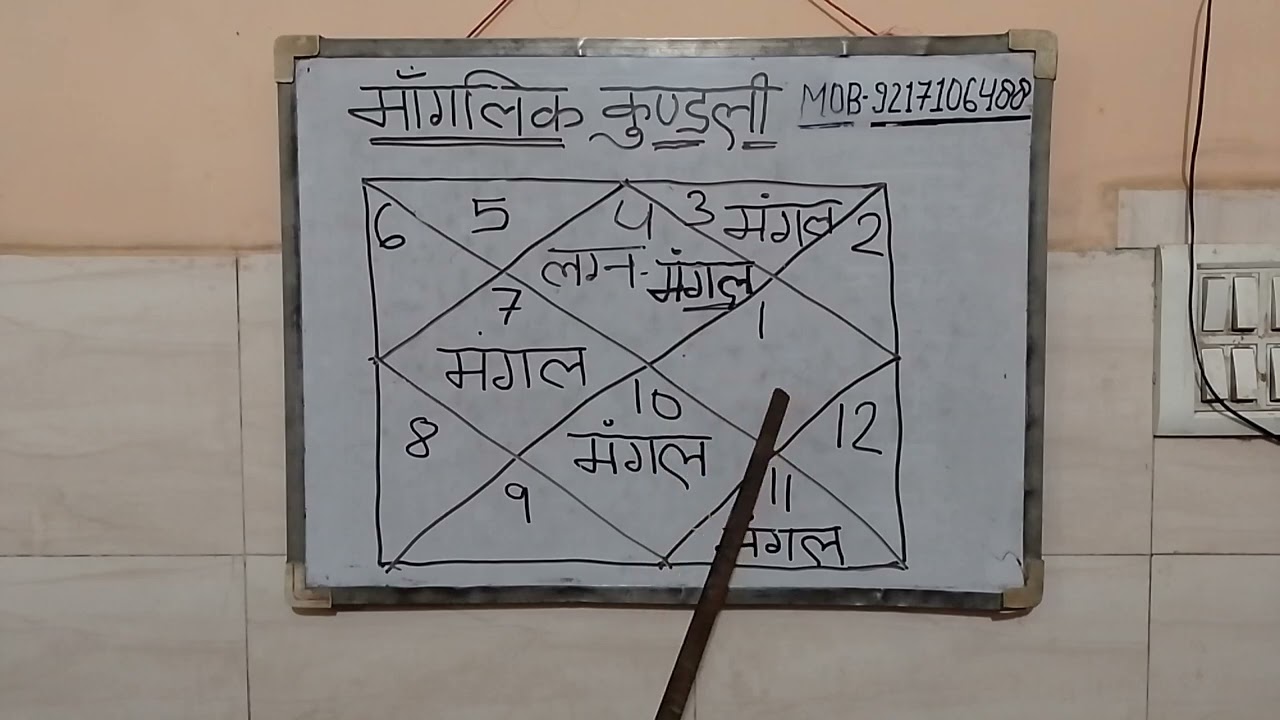 माँगलिक कुण्डली MOB-9217106488
6 5 4 3 मंगल 2
लग्न-मंगल
7 1
मंगल
8 10 12
मंगल
9 11
मंगल